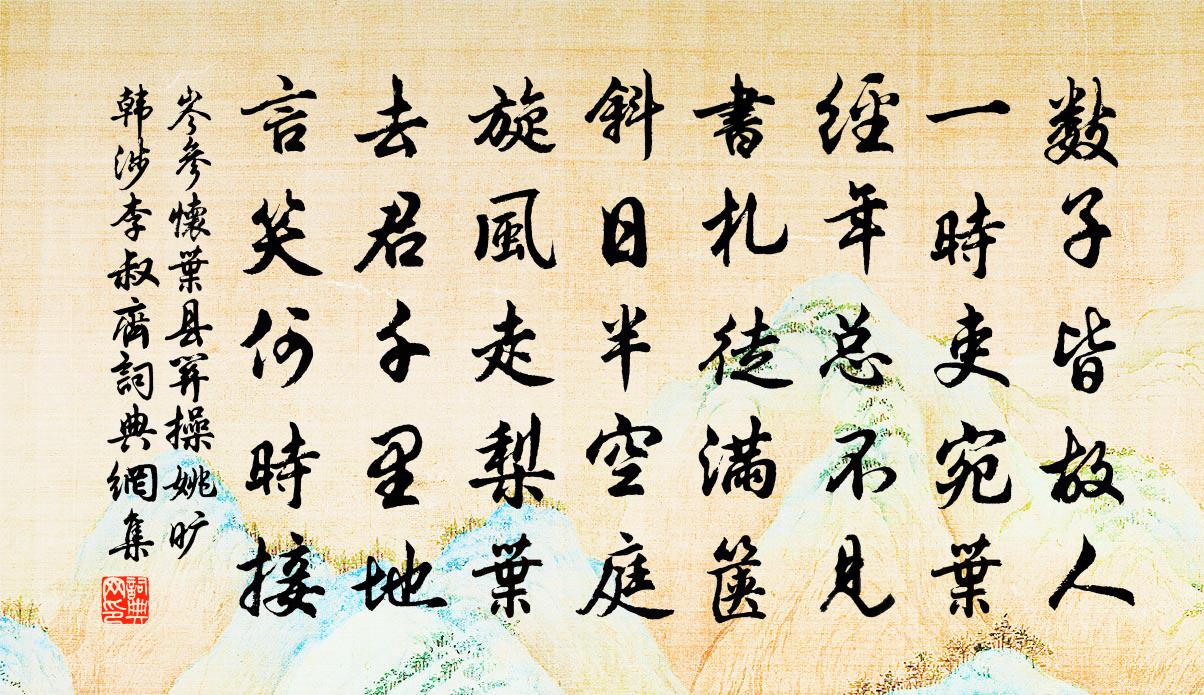 數子皆故人
一時吏宛葉
經年总不見
書札徒滿篋
斜日半空庭
旋風走梨葉
去君千里地
言笑何時接
岑參懷葉县關操姚旷
韩涉李叔齊詞典網集
詞典
网印